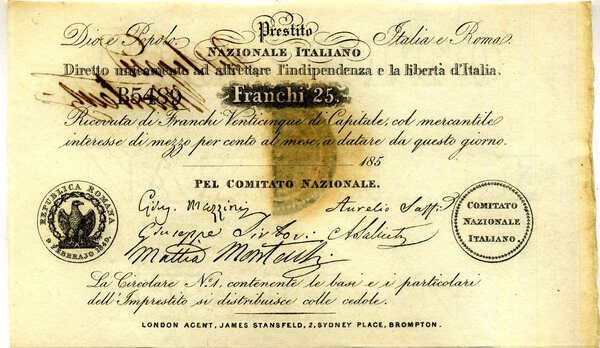 Dio e Popolo. Prestito Italia e Roma.
NAZIONALE ITALIANO
Diretto unicamente ad affrettare l'indipendenza e la libertà d'Italia.
B5489 Franchi 25.
Ricevuta di Franchi Venticinque di Capitale, col mercantile
interesse di mezzo per cento al mese, a datare da questo giorno.
185
PEL COMITATO NAZIONALE.
REPUBLICA ROMANA
9 FEBBRAJO 1849.
Mazzini
Aurelio Saffi
Giuseppe
Mattia Montecchi
COMITATO
NAZIONALE
ITALIANO.
La Circolare No. 1, contenente le basi e i particolari
dell'Imprestito si distribuisce colle cedole.
LONDON AGENT, JAMES STANSFELD, 2, SYDNEY PLACE, BROMPTON.